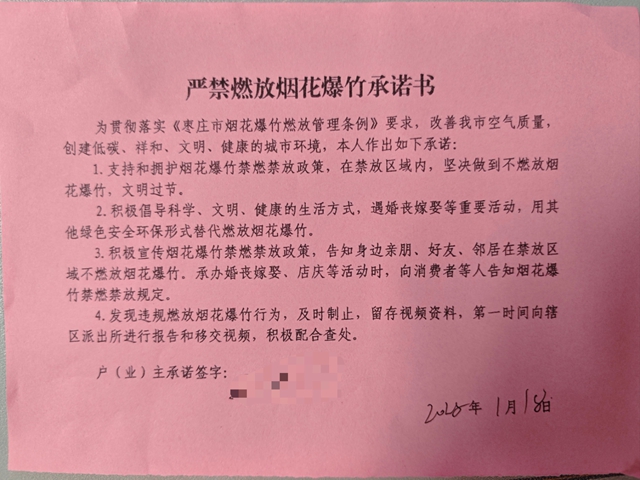 严禁燃放烟花爆竹承诺书
为贯彻落实《枣庄市烟花爆竹燃放管理条例》要求，改善我市空气质量，
创建低碳、祥和、文明、健康的城市环境，本人作出如下承诺：
1.支持和拥护烟花爆竹禁燃禁放政策，在禁放区域内，坚决做到不燃放烟
花爆竹，文明过节。
2.积极倡导科学、文明、健康的生活方式，遇婚丧嫁娶等重要活动，用其
他绿色安全环保形式替代燃放烟花爆竹。
3.积极宣传烟花爆竹禁燃禁放政策，告知身边亲朋、好友、邻居在禁放区
域不燃放烟花爆竹。承办婚丧嫁娶、店庆等活动时，向消费者等人告知烟花爆
竹禁燃禁放规定。
4.发现违规燃放烟花爆竹行为，及时制止，留存视频资料，第一时间向辖
区派出所进行报告和移交视频，积极配合查处。
户（业）主承诺签字：
年1月18日